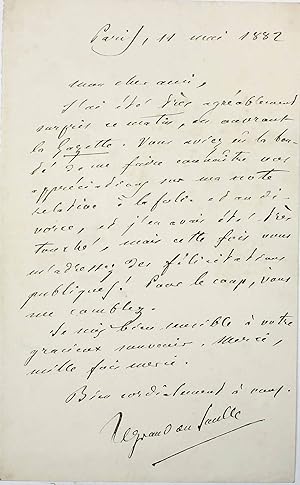 Paris, 11 mai 1882
mon cher ami,
J'ai été très agréablement
surpris ce matin, en ouvrant
la Gazette. Vous aviez eu la bon-
té de me faire connaître vos
appréciations sur ma note
relative à la folie et au di-
vorce, et j'en avais été très
touché, mais cette fois vous
m'adressez des félicitations
publiques! Pour le coup, vous
me comblez.
Je suis bien sensible à votre
gracieux souvenir. Merci,
mille fois merci.
Bien cordialement à vous.
Legrand du Saulle